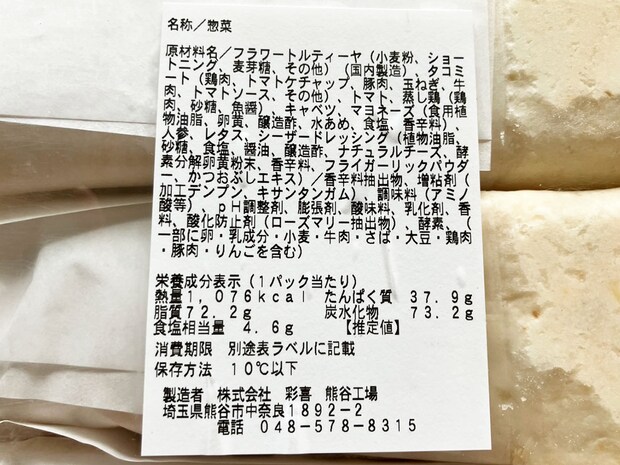 名称／惣菜
原材料名／フラワートルティーヤ（小麦粉、ショー
トニング、麦芽糖、その他）（国内製造）、タコミ
ート（鶏肉、トマトケチャップ、豚肉、玉ねぎ、牛
肉、トマトソース、その他）、トマト、蒸し鶏（鶏
肉、砂糖、魚醤）、キャベツ、マヨネーズ（食用植
物油脂、卵黄、醸造酢、水あめ、食塩、香辛料）、
人参、レタス、シーザードレッシング（植物油脂、
砂糖、食塩、醤油、醸造酢、ナチュラルチーズ、酵
素分解卵黄粉末、香辛料、フライガーリックパウダ
ー、かつおぶしエキス）／香辛料抽出物、増粘剤（
加工デンプン、キサンタンガム）、調味料（アミノ
酸等）、ｐＨ調整剤、膨張剤、酸味料、乳化剤、香
料、酸化防止剤（ローズマリー抽出物）、酵素、（
一部に卵・乳成分・小麦・牛肉・さば・大豆・鶏肉
・豚肉・りんごを含む）
栄養成分表示（１パック当たり）
熱量１，０７６ｋｃａｌ たんぱく質 ３７．９ｇ
脂質７２．２ｇ 炭水化物 ７３．２ｇ
食塩相当量 ４．６ｇ 【推定値】
消費期限 別途表ラベルに記載
保存方法 １０℃以下
製造者 株式会社 彩喜 熊谷工場
埼玉県熊谷市中奈良１８９２－２
電話 ０４８－５７８－８３１５